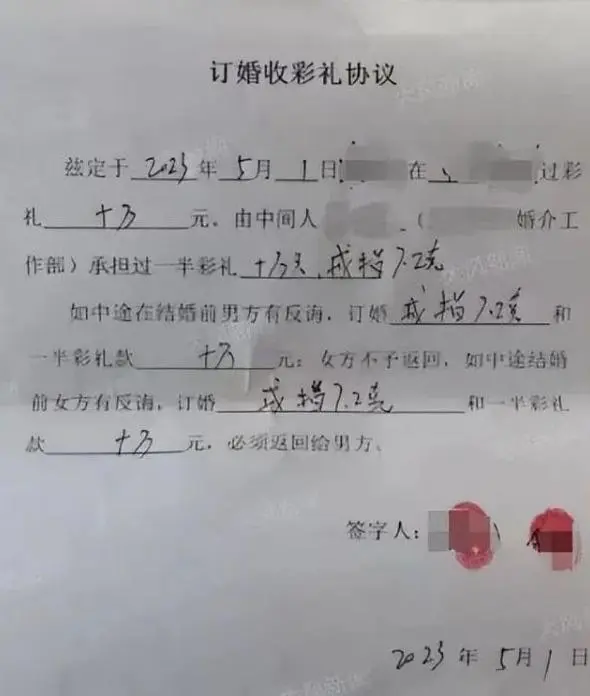 订婚收彩礼协议
兹定于 2023 年 5 月 1 日 在 过彩
礼 十万 元。由中间人 （ 婚介工
作部）承担过一半彩礼 十万元，戒指7.2克
如中途在结婚前男方有反诲，订婚 戒指7.2克 和
一半彩礼款 十万 元；女方不予返回，如中途结婚
前女方有反诲，订婚 戒指7.2克 和一半彩礼
款 十万 元，必须返回给男方。
签字人：
2023 年 5月1日